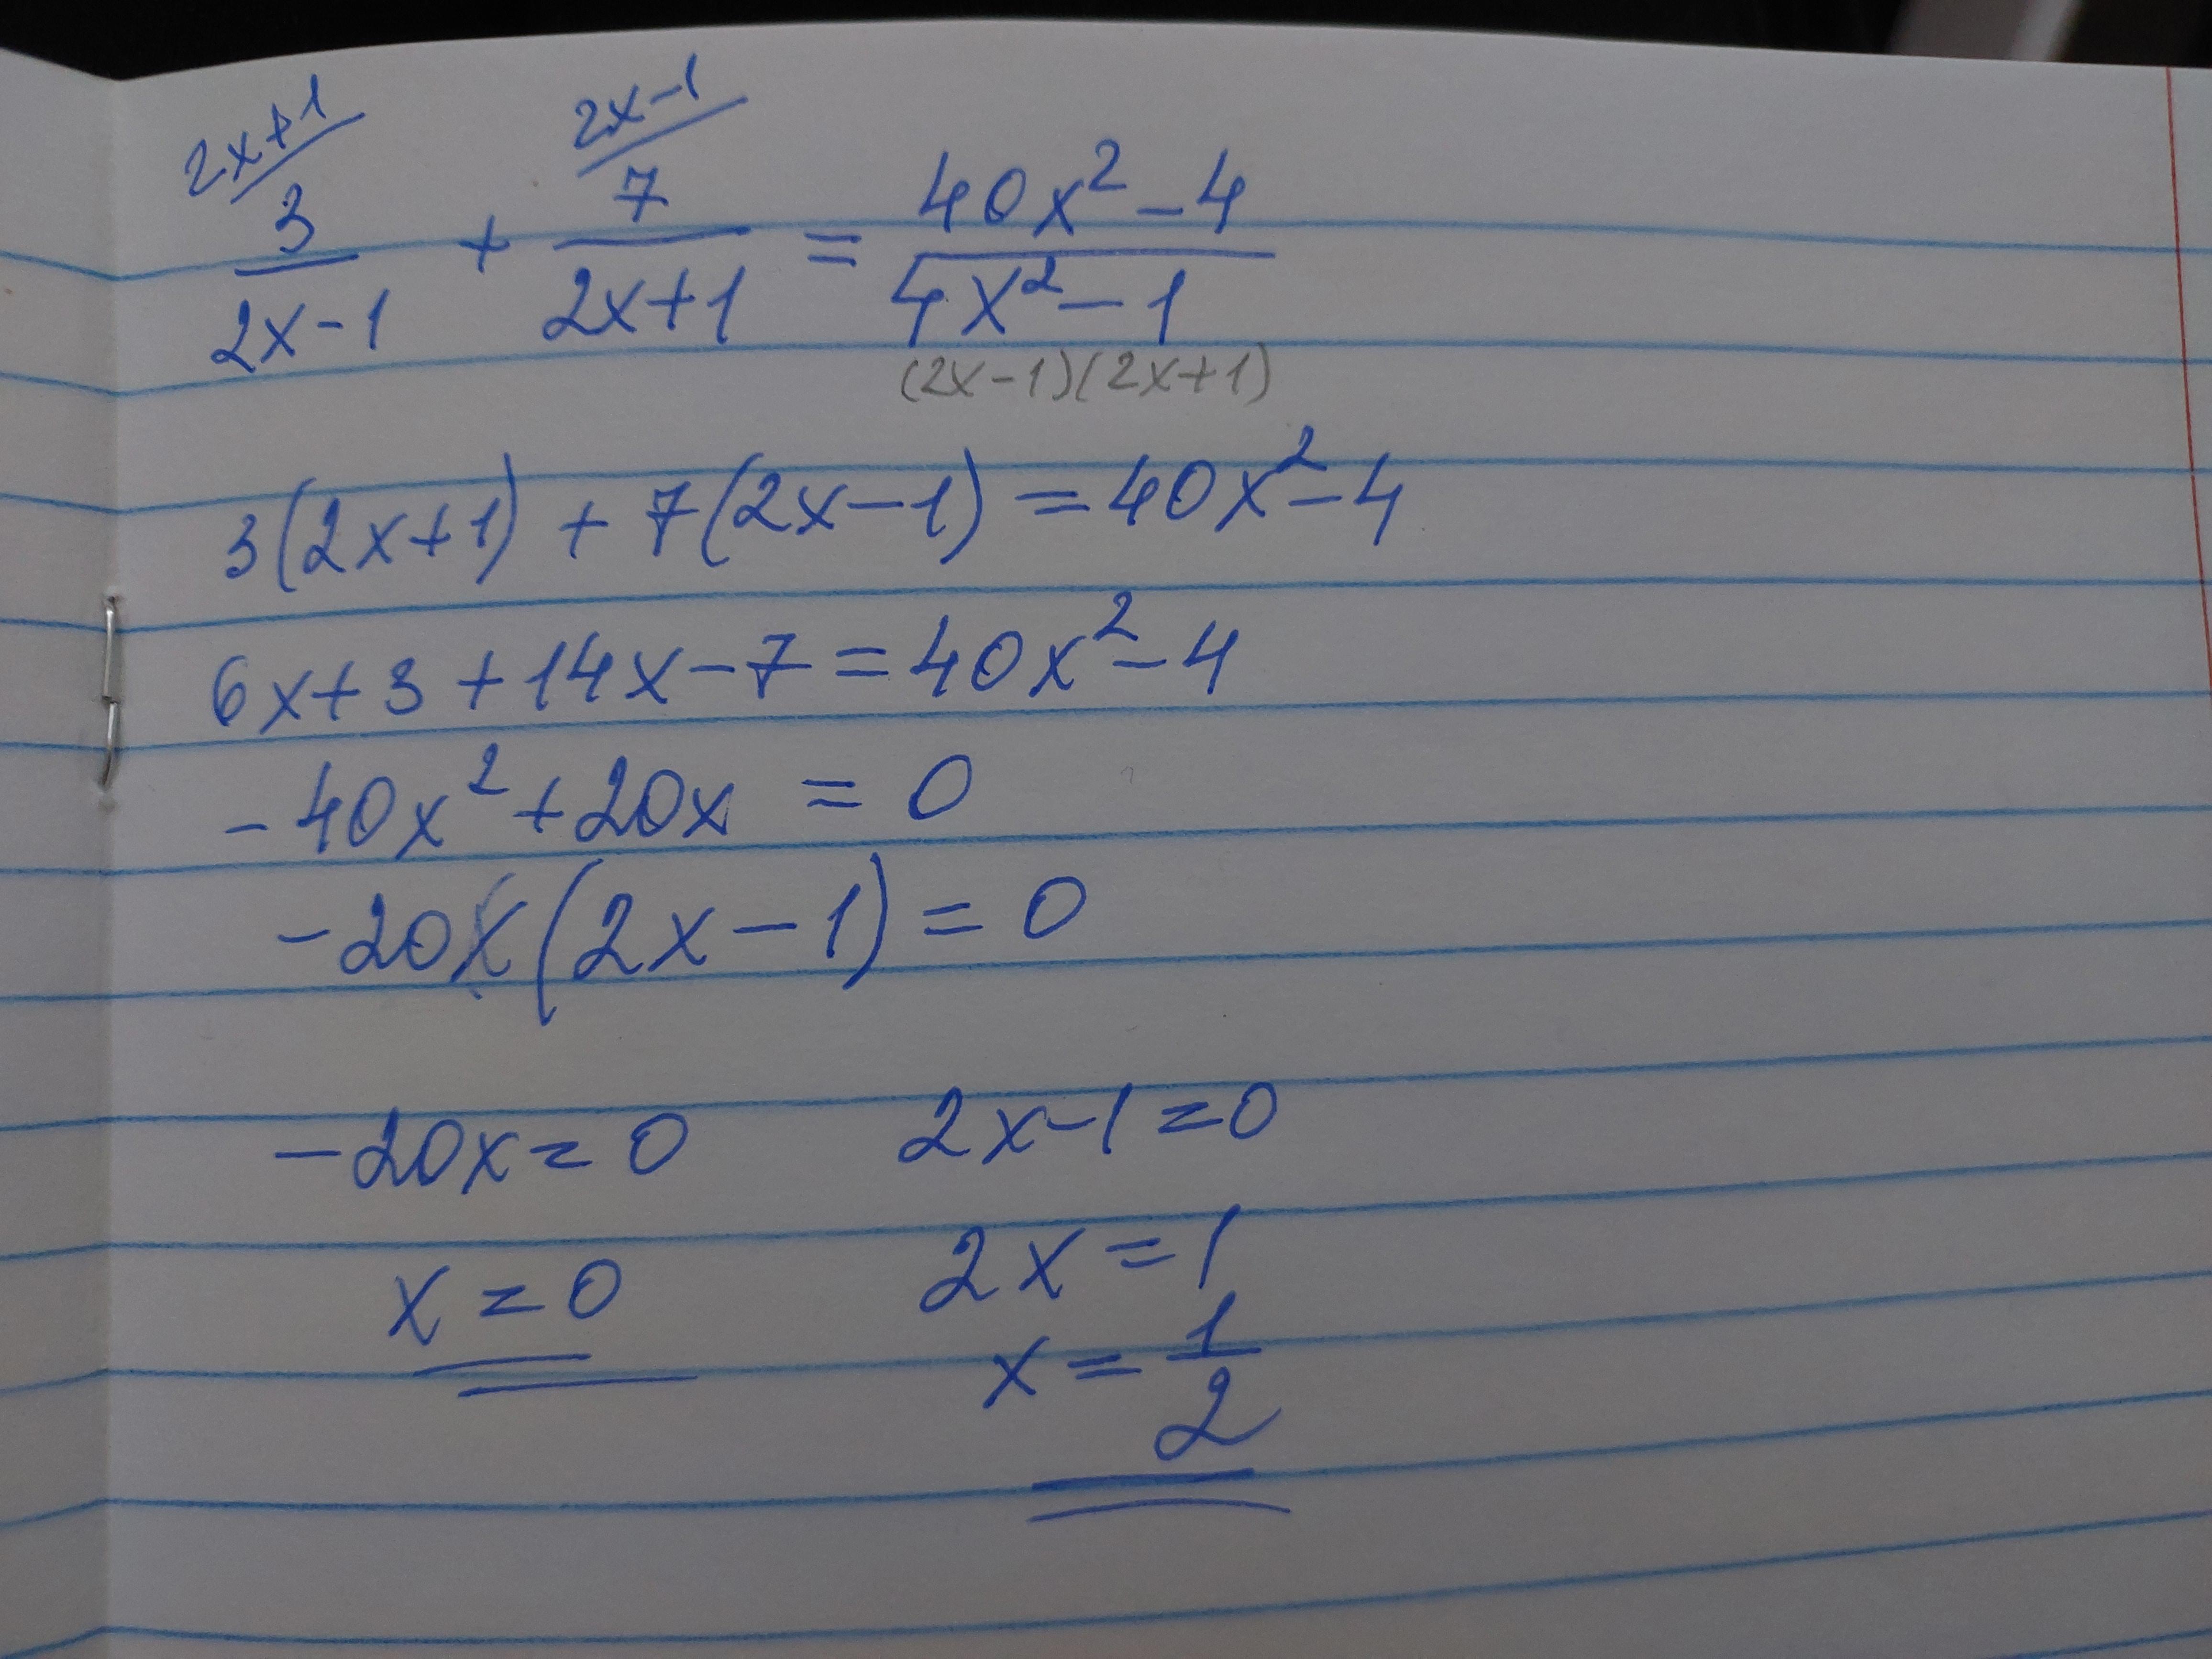 2x+1/ 2x-1/
3/(2x-1) + 7/(2x+1) = (40x²-4)/(4x²-1)
(2x-1)(2x+1)
3(2x+1) + 7(2x-1) = 40x²-4
6x+3+14x-7=40x²-4
-40x²+20x = 0
-20x(2x-1)=0
-20x=0 2x-1=0
x=0 2x=1
x=1/2